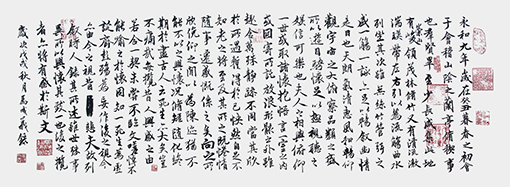 永和九年歲在癸丑暮春之初會
于會稽山陰之蘭亭脩稧事
也羣賢畢至少長咸集此地
有崇山峻領茂林脩竹又有清流激
湍暎帶左右引以為流觴曲水
列坐其次雖無絲竹管弦之
盛一觴一詠亦足以暢叙幽情
是日也天朗氣清惠風和暢仰
觀宇宙之大俯察品類之盛
所以遊目騁懷足以極視聽之
娛信可樂也夫人之相與俯仰
一世或取諸懷抱悟言一室之內
或因寄所託放浪形骸之外雖
趣舍萬殊靜躁不同當其欣
於所遇暫得於己快然自足不
知老之將至及其所之既惓情
隨事遷感慨係之矣向之所
欣俛仰之閒以為陳迹猶不
能不以之興懷況脩短隨化終
期於盡古人云死生亦大矣豈
不痛哉每攬昔人興感之由
若合一契未嘗不臨文嗟悼不
能喻之於懷固知一死生為虛
誕齊彭殤為妄作後之視今
亦由今之視昔悲夫故列
叙時人錄其所述雖世殊事
異所以興懷其致一也後之攬
者亦將有感於斯文
歲次戊戌秋月